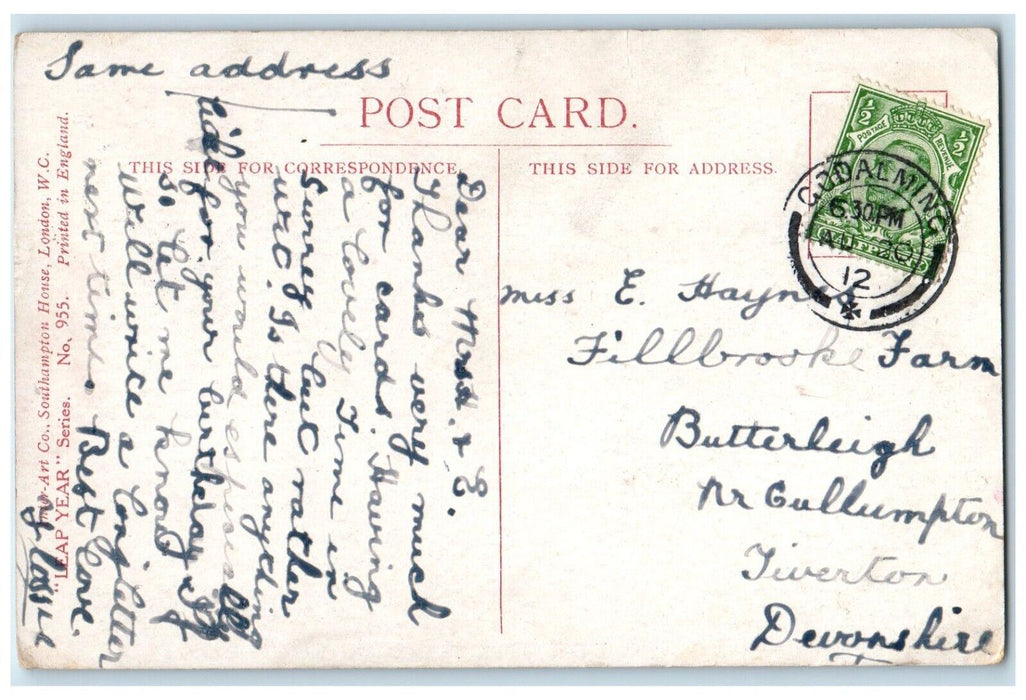 Same address
POST CARD.
THIS SIDE FOR CORRESPONDENCE.
THIS SIDE FOR ADDRESS.
Dear Mrs. & E.
Thanks very much
for cards. Having
a lovely Time in
Surrey but rather
wet. Is there anything
you would especially
like for your birthday. If
so let me know
will write a long letter
next time. Best Love.
Miss E. Hayne
Fillbrooke Farm
Butterleigh
Nr Cullumpton
Tiverton
Devonshire
½ ½
POSTAGE REVENUE
GODALMING
6.30 PM
AU 20
12
Inter-Art Co., Southampton House, London, W.C.
"LEAP YEAR" Series. No. 955. Printed in England.